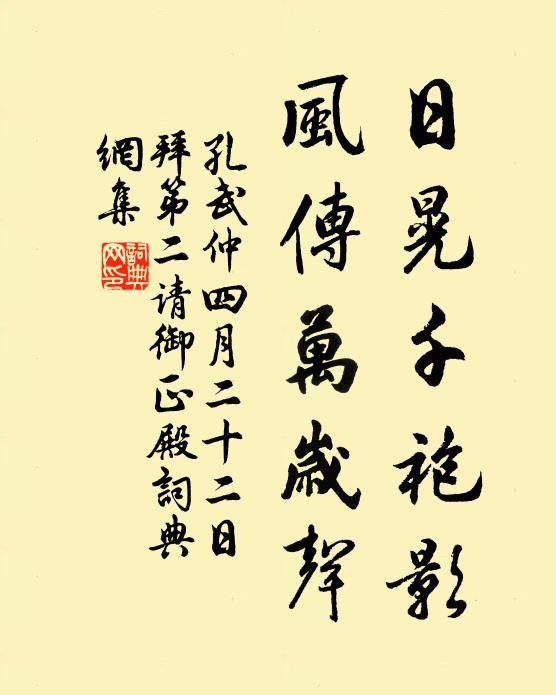 日晃千袍影
風傳萬歲聲
孔武仲四月二十二日
拜第二请御正殿詞典
網集
詞典
网印